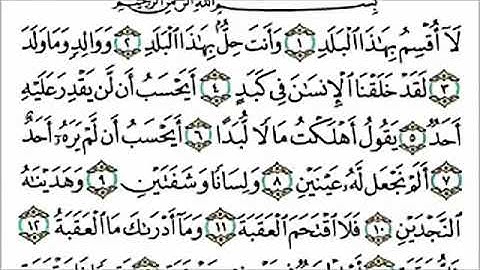 بِسْمِ اللَّهِ الرَّحْمَٰنِ الرَّحِيمِ
لَآ أُقْسِمُ بِهَٰذَا ٱلْبَلَدِ ١ وَأَنتَ حِلٌّۢ بِهَٰذَا ٱلْبَلَدِ ٢ وَوَالِدٍ وَمَا وَلَدَ
٣ لَقَدْ خَلَقْنَا ٱلْإِنسَٰنَ فِى كَبَدٍ ٤ أَيَحْسَبُ أَن لَّن يَقْدِرَ عَلَيْهِ
أَحَدٌ ٥ يَقُولُ أَهْلَكْتُ مَالًا لُّبَدًا ٦ أَيَحْسَبُ أَن لَّمْ يَرَهُۥٓ أَحَدٌ
٧ أَلَمْ نَجْعَل لَّهُۥ عَيْنَيْنِ ٨ وَلِسَانًا وَشَفَتَيْنِ ٩ وَهَدَيْنَٰهُ
ٱلنَّجْدَيْنِ ١٠ فَلَا ٱقْتَحَمَ ٱلْعَقَبَةَ ١١ وَمَآ أَدْرَىٰكَ مَا ٱلْعَقَبَةُ ١٢